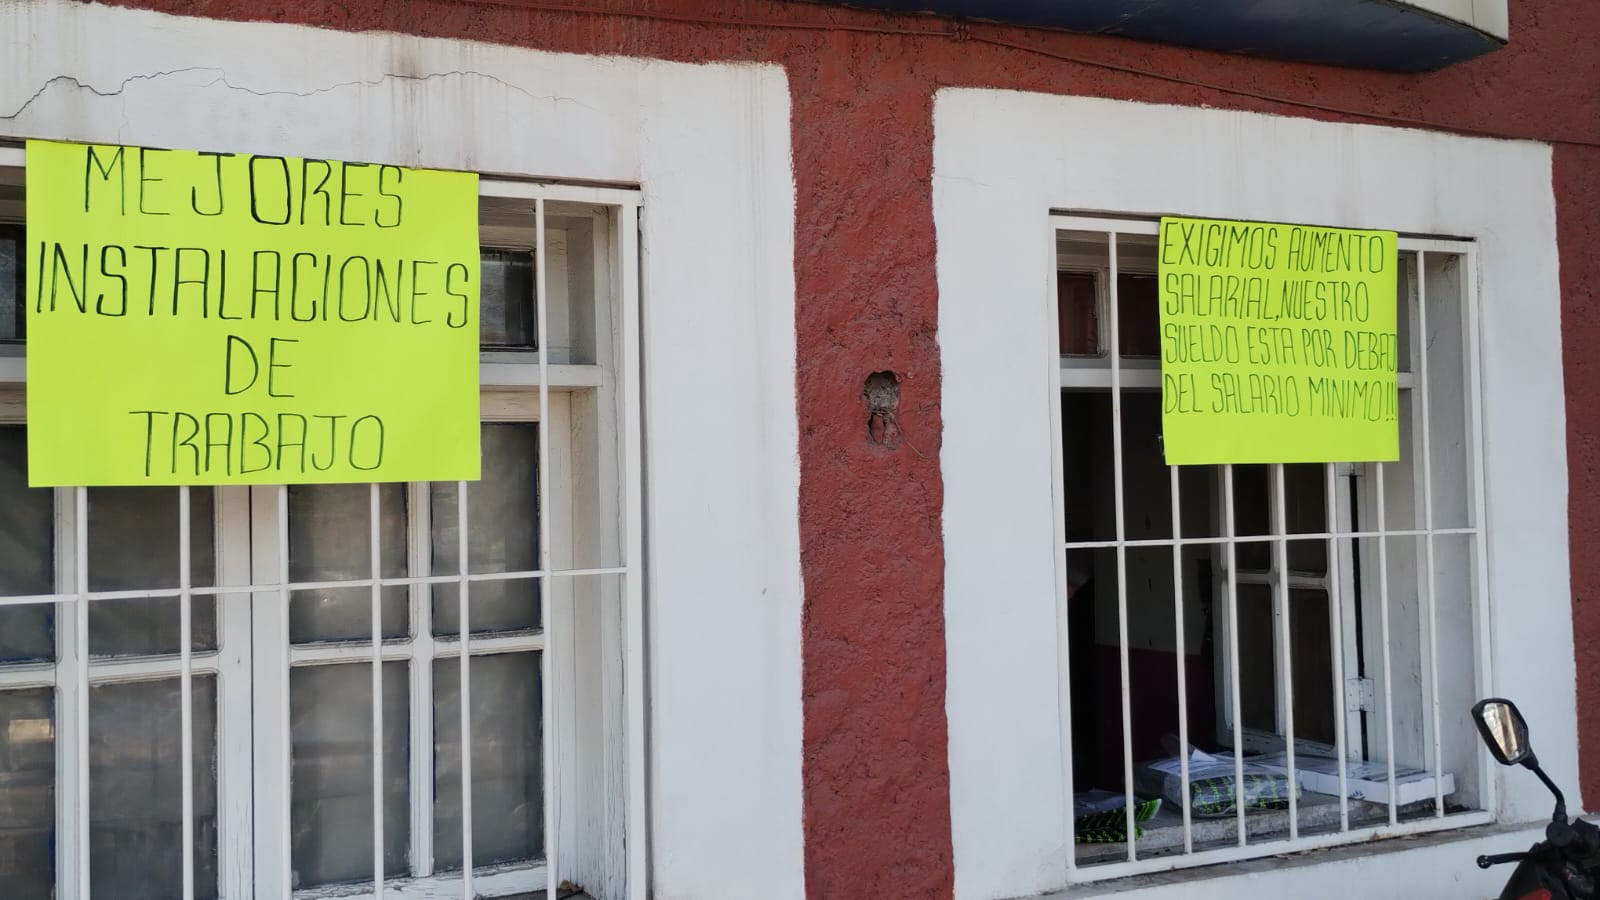 MEJORES
INSTALACIONES
DE
TRABAJO
EXIGIMOS AUMENTO
SALARIAL, NUESTRO
SUELDO ESTA POR DEBAJ
DEL SALARIO MINIMO!!!